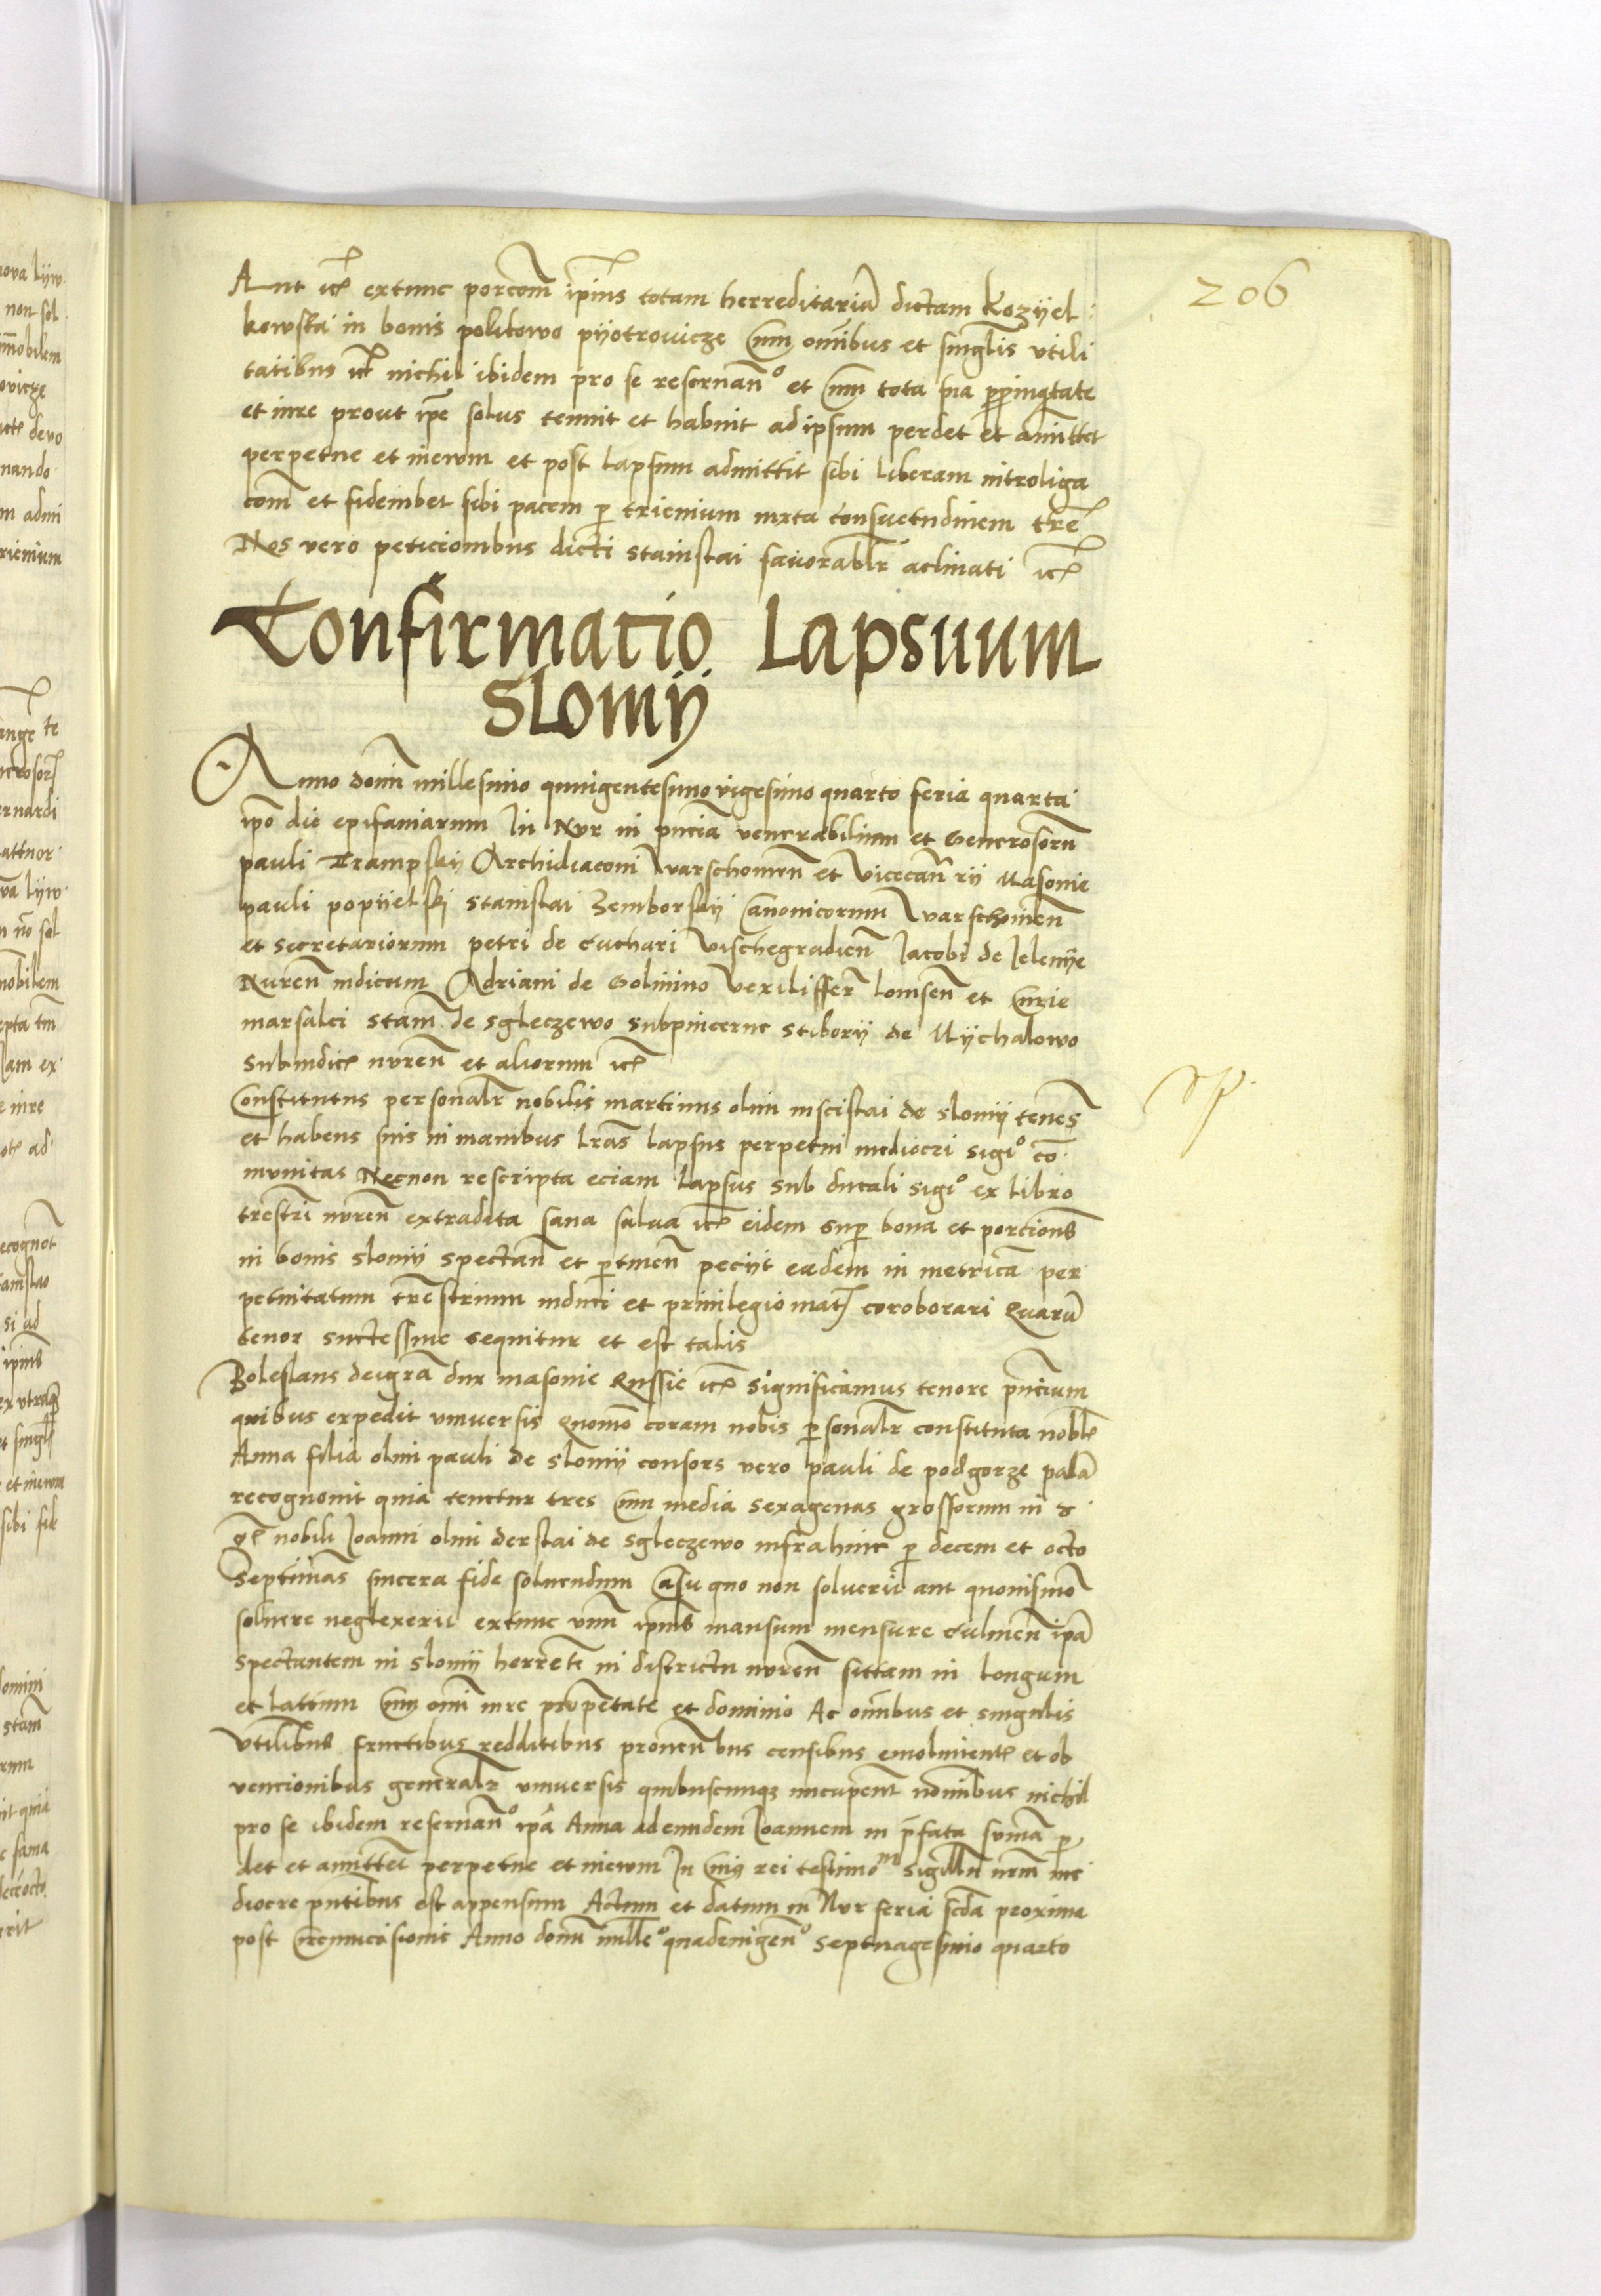 206
Aut etc extunc porcom̄ ipius totam herreditariā dictam Kozyel
kowska in bonis politowo pyotrovicze Cum om̄ibus et singlis vtili
tatibus etc nichil ibidem pro se reseruan° et Cum tota sua ꝓpinqtate
et iure prout ip̄e solus tenuit et habuit ad ipsum perdet et amittet
perpetue et inewom et post lapsum admittit sibi liberam intrōliga
com̄ et fideiubet sibi pacem p trienium iuxta Consuetudinem tr̄e
Nos vero peticionibus dicti stanislai fauorablr aclinati etc
Confirmatio Lapsuum
Slomij
Anno domi millesimo quingentesimo vigesimo quarto feria quarta
ip̄o die epifaniarum In Nvr in pn̄cia venerabilium et Generosoru
pauli Trampsky Archidiaconi Warschouien̄ et Vicecan̄rij Masouie
pauli popyelsky stanislai Zemborsky Canonicorum Warschouien̄
et Secretariorum petri de Cuchari Vischegradien̄ Jacobi de Jelenye
Nuren̄ iudicum Adriani de Golinino Vexilifferi lomsen̄ et Curie
marsalci stam̄ de sgleczewo subpincerne stiborij de Mychalowo
Subiudice nvren̄ et aliorum etc
Constitutus personalr nobilis martinus olim mscislai de slomij tenes
et habens suis in manibus lr̄as lapsus perpetui mediocri sigi° co
munitas Necnon rescripta eciam lapsus sub ducali sigi° ex libro
tr̄estri nvren̄ extradita sana salua etc eidem sup bona et porcions
in bonis slomij spectan̄ et ptinen̄ peciyt eadem in metricā per
petuitatum tr̄estrium induci et priuilegio mat coroborari Quarū
tenor successiue sequitur et est talis
Boleslaus dei gr̄a dux masouie Russie etc Significamus tenore pn̄cium
quibus expedit vniuersis Quomō coram nobis psonalr constituta nobl
Anna filia olim pauli de slomij consors vero pauli de podgorze palā
recognouit quia tenetur tres Cum media sexagenas grossorum in
nobili Joanni olim derslai de sgleczewo infra hinc p decem et octo
Septimas sincera fide soluendum Casu quo non soluerit aut quouismō
soluere neglexerit extunc vnū ipius mansum mensure Culmen̄ ipā
spectantem in slomij herrete in districtu nvren̄ sittam in longum
et latum Cum omi iure propetate et dominio Ac om̄ibus et singulis
Vtilibus fructibus redditibus prouen̄bus censibus emolimente et ob
uencionibus generalr vniuersis quibuscunqz nucupent nōminibus nichil
pro se ibidem reseruan° ipā Anna ad eundem Joannem in p̄fata sumā p
det et amittet perpetue et inewm In Cuius rei testimom Sigillū nr̄m me
diocre pn̄tibus est appensum Actum et datum in Nvr feria scda proxima
post Circumcisionis Anno domi mille° quadenigen° Septuagesimo quarto